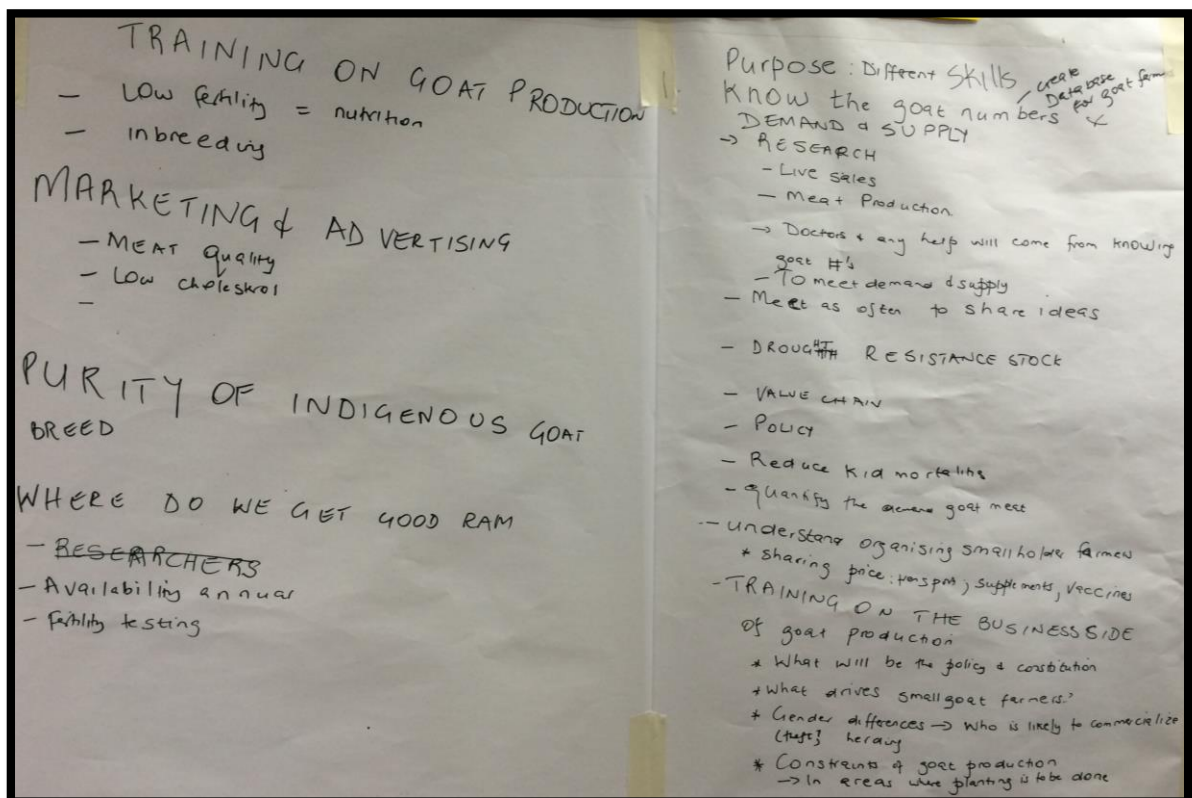 TRAINING ON GOAT PRODUCTION
- Low fertility = nutrition
- inbreeding
MARKETING & ADVERTISING
- MEAT quality
- Low cholestrol
-
PURITY OF INDIGENOUS GOAT
BREED
WHERE DO WE GET GOOD RAM
- RESEARCHERS
- Availability annual
- Fertility testing
1.
Purpose : Different Skills
Know the goat numbers - create
Database
for goat farms
DEMAND & SUPPLY
→ RESEARCH
- Live sales
- Meat Production
→ Doctors & any help will come from knowing
goat #'s
- To meet demand & supply
- Meet as often to share ideas
- DROUGHT RESISTANCE STOCK
- VALUE CHAIN
- POLICY
- Reduce kid mortality
- quantify the goat meat
- understand organising smallholder farmers
* sharing price: transport, supplements, vaccines
- TRAINING ON THE BUSINESS SIDE
of goat production
* What will be the policy & constitution
* What drives small goat farmers?
* Gender differences → Who is likely to commercialize
herding
* Constraints of goat production
→ In areas where planting is to be done